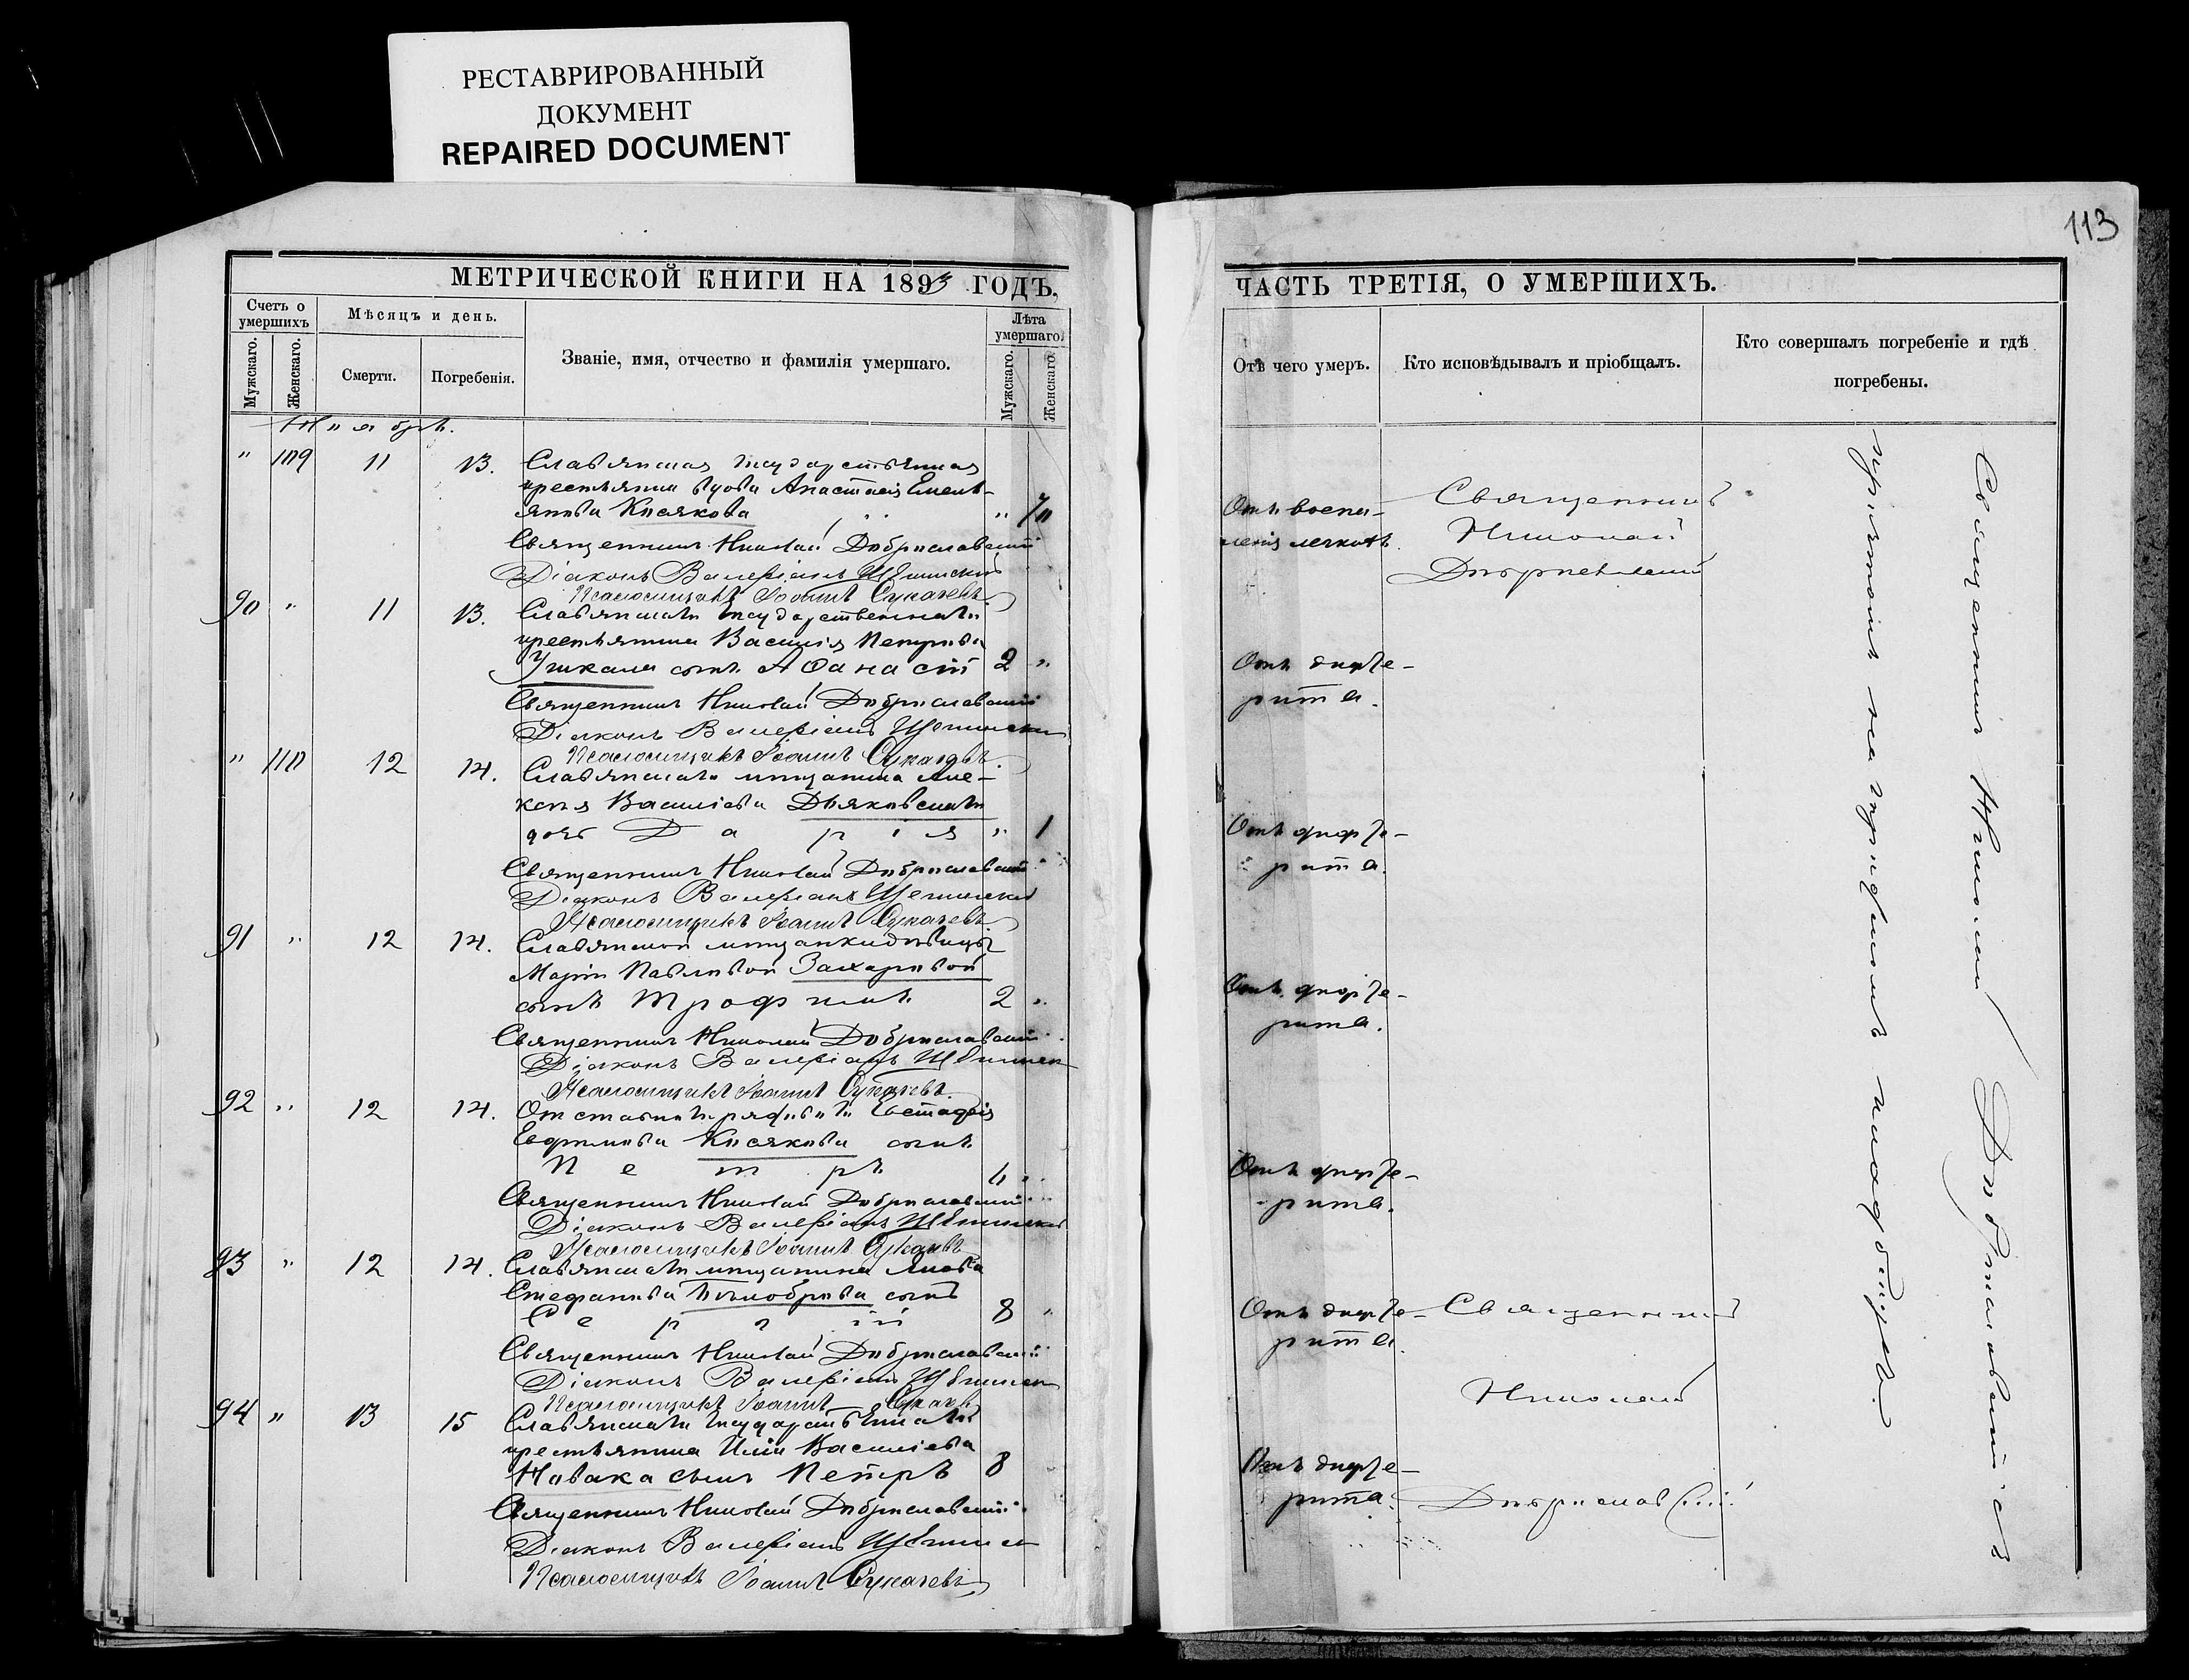 РЕСТАВРИРОВАННЫЙ
ДОКУМЕНТ
REPAIRED DOCUMENT
МЕТРИЧЕСКОЙ КНИГИ НА 1893 ГОДЪ,
Счетъ о умершихъ
Мужскаго.
Женскаго.
Мѣсяцъ и день.
Смерти.
Погребенія.
Званіе, имя, отчество и фамилія умершаго.
Лѣта умершаго.
Мужскаго.
Женскаго.
Ноябрь.
" 109 11 13. Славянская государственная
крестьянка вдова Анастасія Емель-
янова Косякова " 70
Священникъ Николай Доброславскій
Діаконъ Валеріанъ
Псаломщикъ Іоаннъ Сукачевъ
90 " 11 13. Славянскаго государственнаго
крестьянина Василія Петрова
Ушкала сынъ Аѳанасій 2 "
Священникъ Николай Доброславскій
Діаконъ Валеріанъ
Псаломщикъ Іоаннъ Сукачевъ.
" 110 12 14. Славянскаго мѣщанина Але-
ксѣя Василіева Дьяковскаго
дочь Дарія " 1
Священникъ Николай Доброславскій
Діаконъ Валеріанъ
Псаломщикъ Іоаннъ Сукачевъ
91 " 12 14. Славянской мѣщанки дѣвицы
Маріи Павловой Захаровой
сынъ Трофимъ 2 "
Священникъ Николай Доброславскій
Діаконъ Валеріанъ
Псаломщикъ Іоаннъ Сукачевъ.
92 " 12 14. Отставнаго рядоваго Евстафія
Ефимова Косякова сынъ
Петръ 4 "
Священникъ Николай Доброславскій
Діаконъ Валеріанъ
Псаломщикъ Іоаннъ Сукачевъ
93 " 12 14. Славянскаго мѣщанина Якова
Стефанова Бѣлоброва сынъ
Сергій 8 "
Священникъ Николай Доброславскій
Діаконъ Валеріанъ
Псаломщикъ Іоаннъ Сукачевъ
94 " 13 15 Славянскаго государственнаго
крестьянина Иліи Василіева
Новака сынъ Петръ 8
Священникъ Николай Доброславскій
Діаконъ Валеріанъ
Псаломщикъ Іоаннъ Сукачевъ
113
ЧАСТЬ ТРЕТІЯ, О УМЕРШИХЪ.
Отъ чего умеръ.
Кто исповѣдывалъ и пріобщалъ.
Кто совершалъ погребеніе и гдѣ
погребены.
Отъ воспа-
ленія легкихъ.
Священникъ
Николай
Доброславскій
Отъ дифте-
рита.
Отъ дифте-
рита.
Отъ дифте-
рита.
Отъ дифте-
рита.
Отъ дифте-
рита.
Священникъ
Николай
Доброславскій
Отъ дифте-
рита.
Священникъ Николай Доброславскій съ
причтомъ на приходскомъ кладбищѣ.